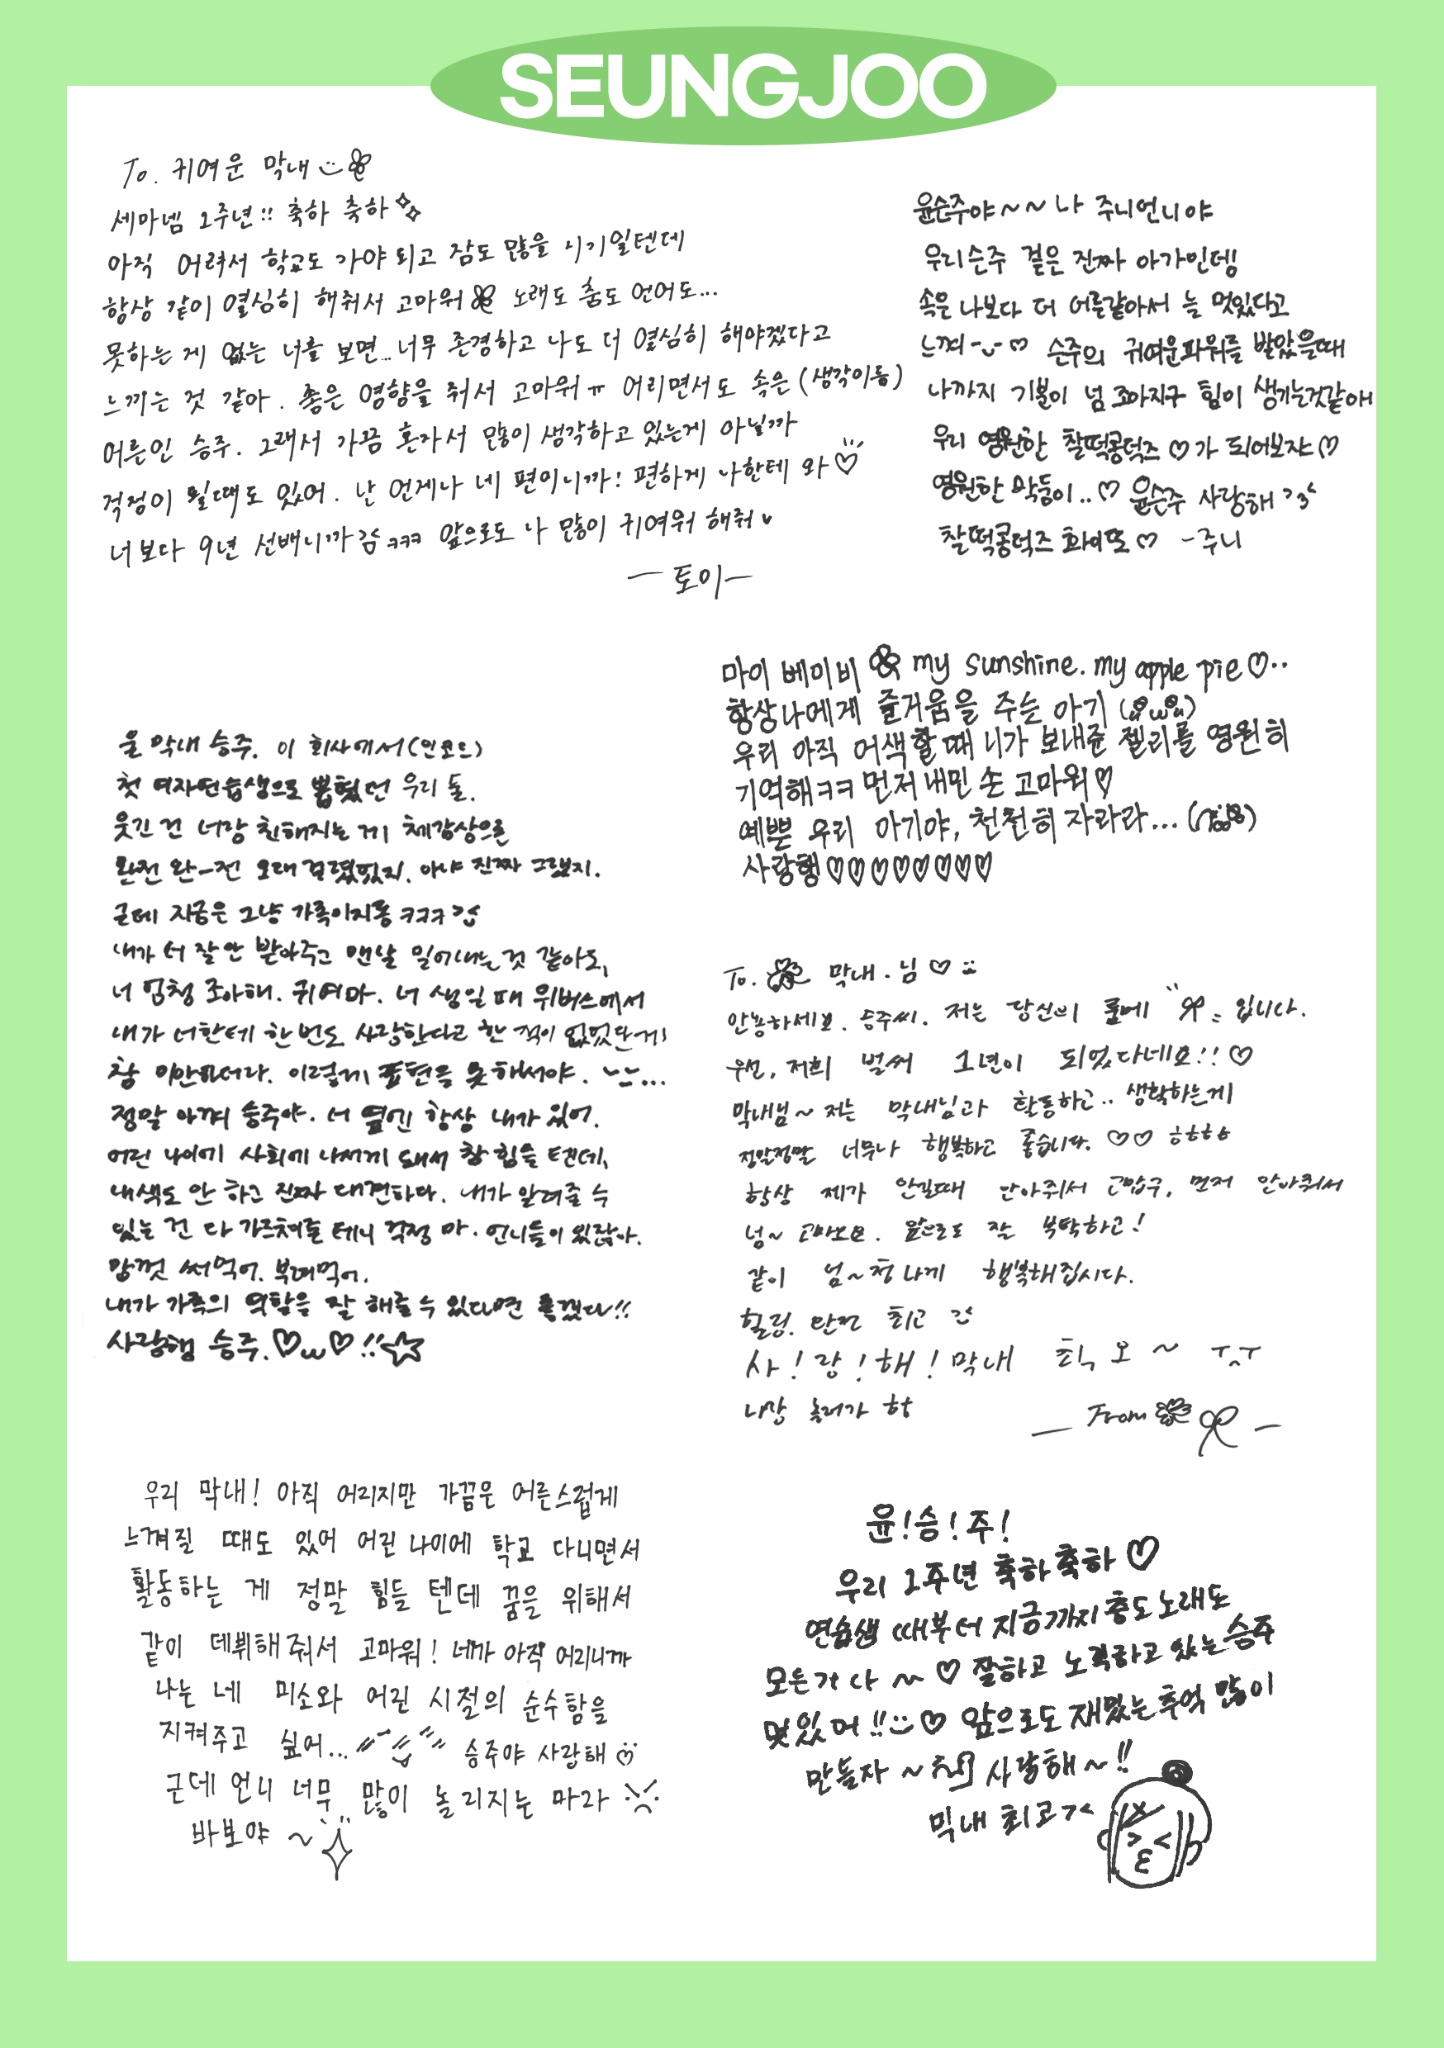 SEUNGJOO
To. 귀여운 막내
세마넴 1주년!! 축하 축하
아직 어려서 학교도 가야 되고 잠도 많을 시기일텐데
항상 같이 열심히 해줘서 고마워 노래도 춤도 언어도...
못하는 게 없는 너를 보면...너무 존경하고 나도 더 열심히 해야겠다고
느끼는 것 같아. 좋은 영향을 줘서 고마워ㅠ 어리면서도 속은(생각이 등)
어른인 승주. 그래서 가끔 혼자서 많이 생각하고 있는게 아닐까
걱정이 될 때도 있어. 난 언제나 네 편이니까! 편하게 나한테 와♡
너보다 9년 선배니까 ㅋㅋㅋ 앞으로도 나 많이 귀여워 해줘
ㅡ토이ㅡ
윤슨주야~~나 주니언니야
우리슨주 겉은 진짜 아가인데
속은 나보다 더 어른같아서 늘 멋있다고
느껴 ♡ 슨주의 귀여운파워를 받았을때
나까지 기분이 넘 조아지구 힘이 생기는것같아
우리 영원한 찰떡콩덕즈♡가 되어보쟈♡
영원한 막둥이..♡ 윤슨주 사랑해
찰떡콩덕즈 화이또♡ -주니
마이 베이비 my sunshine. my apple pie♡..
항상나에게 즐거움을 주는 아기
우리 아직 어색할때 니가 보내준 젤리를 영원히
기억해ㅋㅋ 먼저 내민 손 고마워♡
예쁜 우리 아기야, 천천히 자라라...
사랑행♡♡♡♡♡♡♡♡
울 막내 승주. 이 회사에서(인코드)
첫 여자연습생으로 뽑혔던 우리 둘.
웃긴 건 너랑 친해지는 게 체감상으론
완전 완-전 오래 걸렸었지. 아냐 진짜 그랬지.
근데 지금은 그냥 가족이지롱 ㅋㅋㅋ
내가 너 잘 안 받아주고 맨날 밀어내는 것 같아도,
너 엄청 조아해. 귀여마. 너 생일 때 위버스에서
내가 너한테 한 번도 사랑한다고 한 적이 없었단 게
참 미안하더라. 이렇게 표현을 못 해서야. ...
정말 아껴 승주야. 너 옆엔 항상 내가 있어.
어린 나이에 사회에 나서게 돼서 참 힘들 텐데,
내색도 안 하고 진짜 대견하다. 내가 알려줄 수
있는 건 다 가르쳐줄 테니 걱정 마. 언니들이 있잖아.
맘껏 써먹어. 부려먹어.
내가 가족의 역할을 잘 해줄 수 있다면 좋겠다!!
사랑행 승주.♡ω♡!!☆
To. 막내.님♡
안농하세요. 승주씨. 저는 당신의 룸메 입니다.
우선, 저희 벌써 1년이 되었다네요!!♡
막내님~ 저는 막내님과 활동하고.. 생활하는게
정말정말 너무나 행복하고 좋습니다. ♡♡ ㅎㅎㅎㅎ
항상 제가 안길때 안아줘서 고맙구, 먼저 안아줘서
넘~ 고마오요. 앞으로도 잘 부탁하고!
같이 넘~청나게 행복해집시다.
힐링. 완전 최고
사!랑!해! 막내 최, 오~ ㅜ^ㅜ
나랑 놀러가 항
ㅡ From ㅡ
우리 막내! 아직 어리지만 가끔은 어른스럽게
느껴질 때도 있어 어린 나이에 학교 다니면서
활동하는 게 정말 힘들 텐데 꿈을 위해서
같이 데뷔해줘서 고마워! 네가 아직 어리니까
나는 네 미소와 어린 시절의 순수함을
지켜주고 싶어... 승주야 사랑해♡
근데 언니 너무 많이 놀리지는 마라
바보야~
윤!승!주!
우리 1주년 축하축하♡
연습생 때부터 지금까지 춤도 노래도
모든거 다 ~♡ 잘하고 노력하고 있는 승주
멋있어!!♡ 앞으로도 재밌는 추억 많이
만들자~ 사랑해~!!
막내 최고